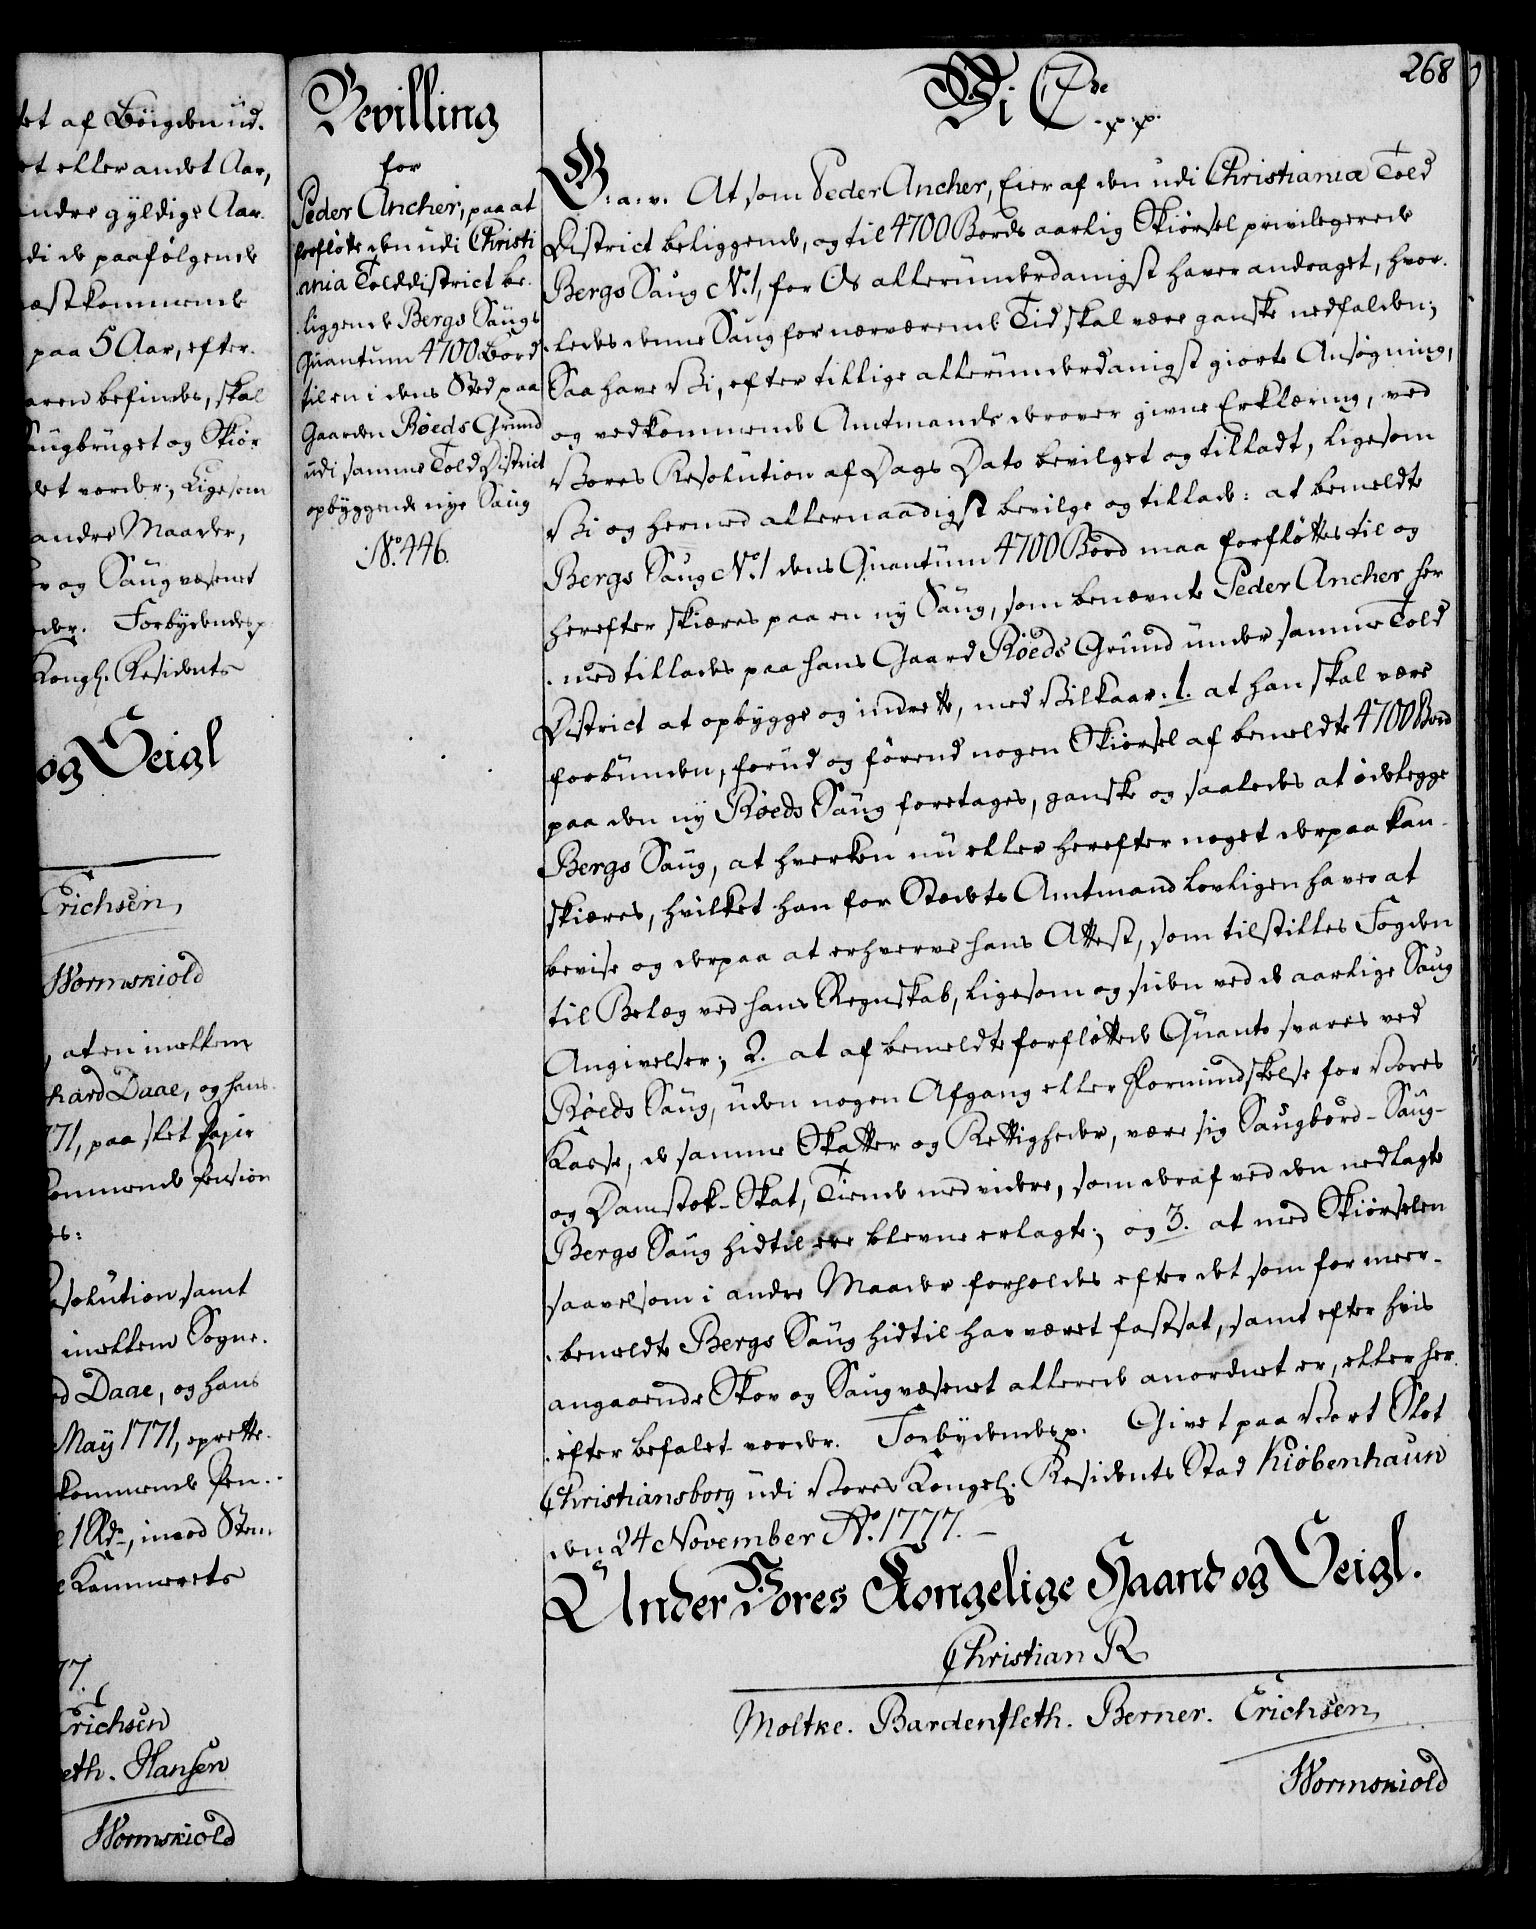 tet af Böigden ud-
et eller andet Aar,
indre gyldige Aar.
di de paafølgende
æstkommende
paa 5 Aar, efter-
aren befindes, skal
Saugbruget og Skiör
det vorder; Ligesom
andre Maader,
ov og Saugvæsenet
der. Forbydendes p.
Kongl. Residents
og Seigl
Erichsen,
Wormskiold
, at en imellem
hard Daae, og hans
771, paa slet Papir
kommende Pension
es:
esolution samt
imellem Sogne-
ed Daae, og hans
May 1771, oprette-
kommende Pen-
e 1 Rd, imod Stem
e Kammerets
77.
Erichsen
eth. Hansen
Wormskiold
Bevilling
for
Peder Ancher, paa at
forflötte den udi Christi
ania Tolddistrict be-
liggende Bergs Saugs
Quantum 4700 Bord
til en i dens Sted paa
Gaarden Röeds Grund
udi samme Told District
opbyggende nye Saug
No. 446.
268
Vi C 7de p. p.
G. a. v. At som Peder Ancher, Eier af den udi Christiania Told
District beliggende, og til 4700 Bords aarlig Skiörsel privilegerede
Bergs Saug No. 1, for Os allerunderdanigst haver andraget, hvor-
ledes denne Saug for nærværende Tid skal være ganske nedfalden;
Saa have Vi, efter tillige allerunderdanigst giorte Ansögning,
og vedkommende Amtmands derover givne Erklæring, ved
Vores Resolution af Dags Dato bevilget og tilladt, ligesom
Vi og hermed allernaadigst bevilge og tillade: at bemeldte
Bergs Saug No. 1 dens Quantum 4700 Bord maa forflöttes til og
herefter skiæres paa en ny Saug, som benævnte Peder Ancher her
med tillades paa hans Gaard Röeds Grund under samme Told
District at opbygge og indrette, med Vilkaar. 1. at han skal være
forbunden, forud og förend nogen Skiörsel af bemeldte 4700 Bord
paa den ny Röeds Saug foretages, ganske og saaledes at ödelegge
Bergs Saug, at hverken nu eller herefter noget derpaa kan
skiæres, hvilket han for Stedets Amtmand lovligen haver at
bevise og derpaa at erhverve hans Attest, som tilstilles Fogden
til Belæg ved hans Regnskab, ligesom og siden ved de aarlige Saug
Angivelser; 2. at af bemeldte forflöttede Quanto svares ved
Röeds Saug, uden nogen Afgang eller Formindskelse for Vores
Kasse, de samme Skatter og Rettigheder, være sig Saugbord- Saug-
og Damstok-Skat, Tiende med videre, som deraf ved den nedlagte
Bergs Saug hidtil ere blevne erlagte; og 3. at med Skiörselen
saavelsom i andre Maader forholdes efter det som for meer-
bemeldte Bergs Saug hidtil har været fastsat, samt efter hvis
angaaende Skov og Saugvæsenet allerede anordnet er, eller her-
efter befalet vorder. Forbydendes p. Givet paa Vort Slot
Christiansborg udi Vores Kongel. Residents Stad Kiöbenhaun
den 24 November Ao. 1777.
Under Vores Kongelige Haand og Seigl.
Christian R
Moltke. Bardenfleth. Berner. Erichsen,
Wormskiold